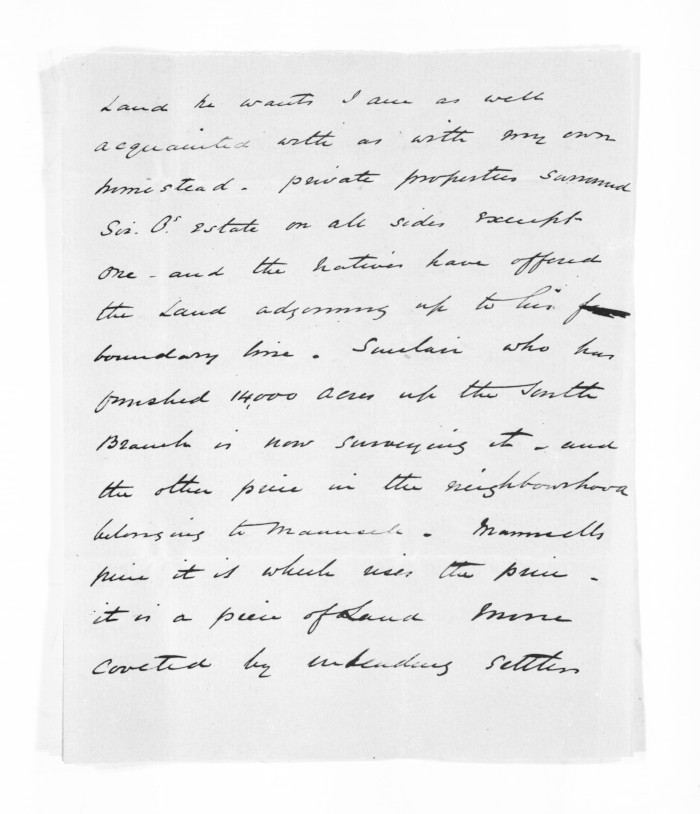 Land he wants I am as well
acquainted with as with my own
homestead - private properties surround
Sir. O's estate on all sides except
one - and the Natives have offered
the Land adjoining up to his
boundary line. Sinclair who has
finished 14,000 acres up the South
Branch is now surveying it - and
the other piece in the neighbourhood
belonging to Maunsell. Maunsells
piece it is which rises the price -
it is a piece of Land more
coveted by intending settlers